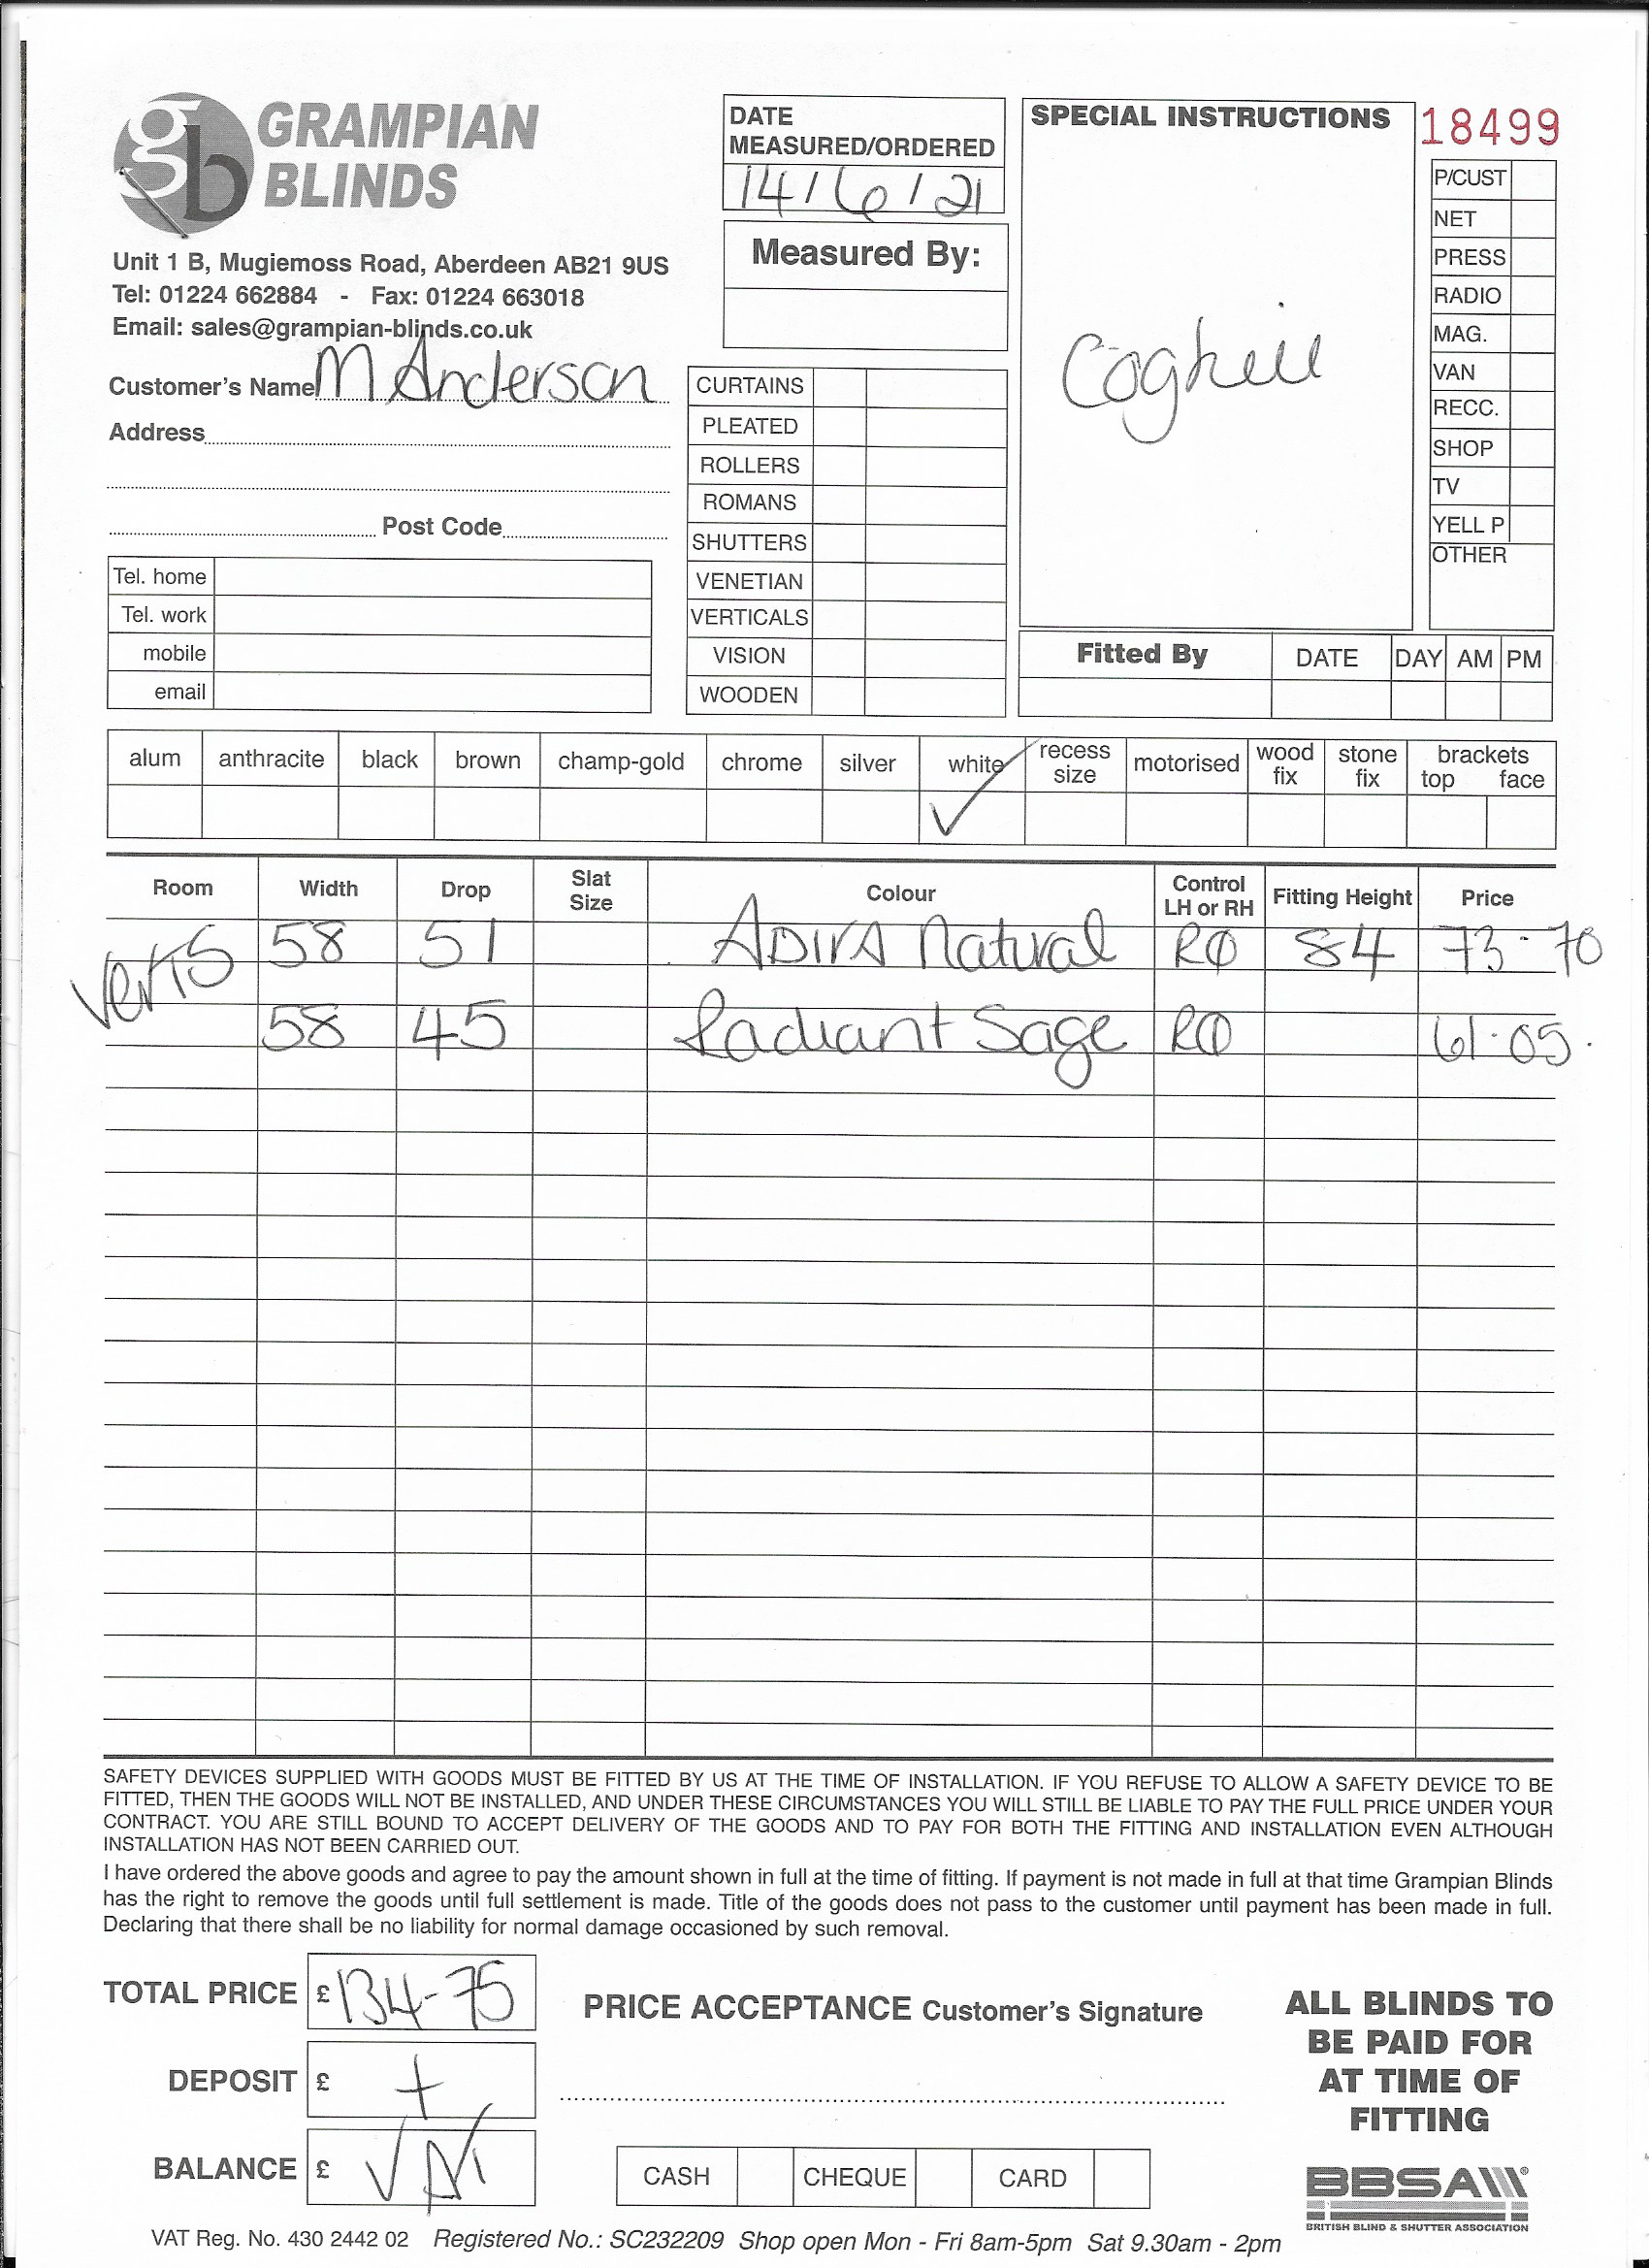 gb GRAMPIAN
BLINDS
Unit 1 B, Mugiemoss Road, Aberdeen AB21 9US
Tel: 01224 662884 - Fax: 01224 663018
Email: sales@grampian-blinds.co.uk
Customer's Name M Anderson
Address
Post Code
Tel. home
Tel. work
mobile
email
DATE
MEASURED/ORDERED
14/6/21
Measured By:
CURTAINS
PLEATED
ROLLERS
ROMANS
SHUTTERS
VENETIAN
VERTICALS
VISION
WOODEN
SPECIAL INSTRUCTIONS
Coghill
18499
P/CUST
NET
PRESS
RADIO
MAG.
VAN
RECC.
SHOP
TV
YELL P
OTHER
Fitted By DATE DAY AM PM
alum anthracite black brown champ-gold chrome silver white recess size motorised wood fix stone fix brackets top face
✓
Room Width Drop Slat Size Colour Control LH or RH Fitting Height Price
Verts 58 51 ADIVA Natural RØ 84 73-70
58 45 Radiant Sage RØ 61-05.
SAFETY DEVICES SUPPLIED WITH GOODS MUST BE FITTED BY US AT THE TIME OF INSTALLATION. IF YOU REFUSE TO ALLOW A SAFETY DEVICE TO BE
FITTED, THEN THE GOODS WILL NOT BE INSTALLED, AND UNDER THESE CIRCUMSTANCES YOU WILL STILL BE LIABLE TO PAY THE FULL PRICE UNDER YOUR
CONTRACT. YOU ARE STILL BOUND TO ACCEPT DELIVERY OF THE GOODS AND TO PAY FOR BOTH THE FITTING AND INSTALLATION EVEN ALTHOUGH
INSTALLATION HAS NOT BEEN CARRIED OUT.
I have ordered the above goods and agree to pay the amount shown in full at the time of fitting. If payment is not made in full at that time Grampian Blinds
has the right to remove the goods until full settlement is made. Title of the goods does not pass to the customer until payment has been made in full.
Declaring that there shall be no liability for normal damage occasioned by such removal.
TOTAL PRICE £ 134-75
DEPOSIT £ +
BALANCE £ VAT
PRICE ACCEPTANCE Customer's Signature
CASH CHEQUE CARD
ALL BLINDS TO
BE PAID FOR
AT TIME OF
FITTING
BBSA
BRITISH BLIND & SHUTTER ASSOCIATION
VAT Reg. No. 430 2442 02 Registered No.: SC232209 Shop open Mon - Fri 8am-5pm Sat 9.30am - 2pm